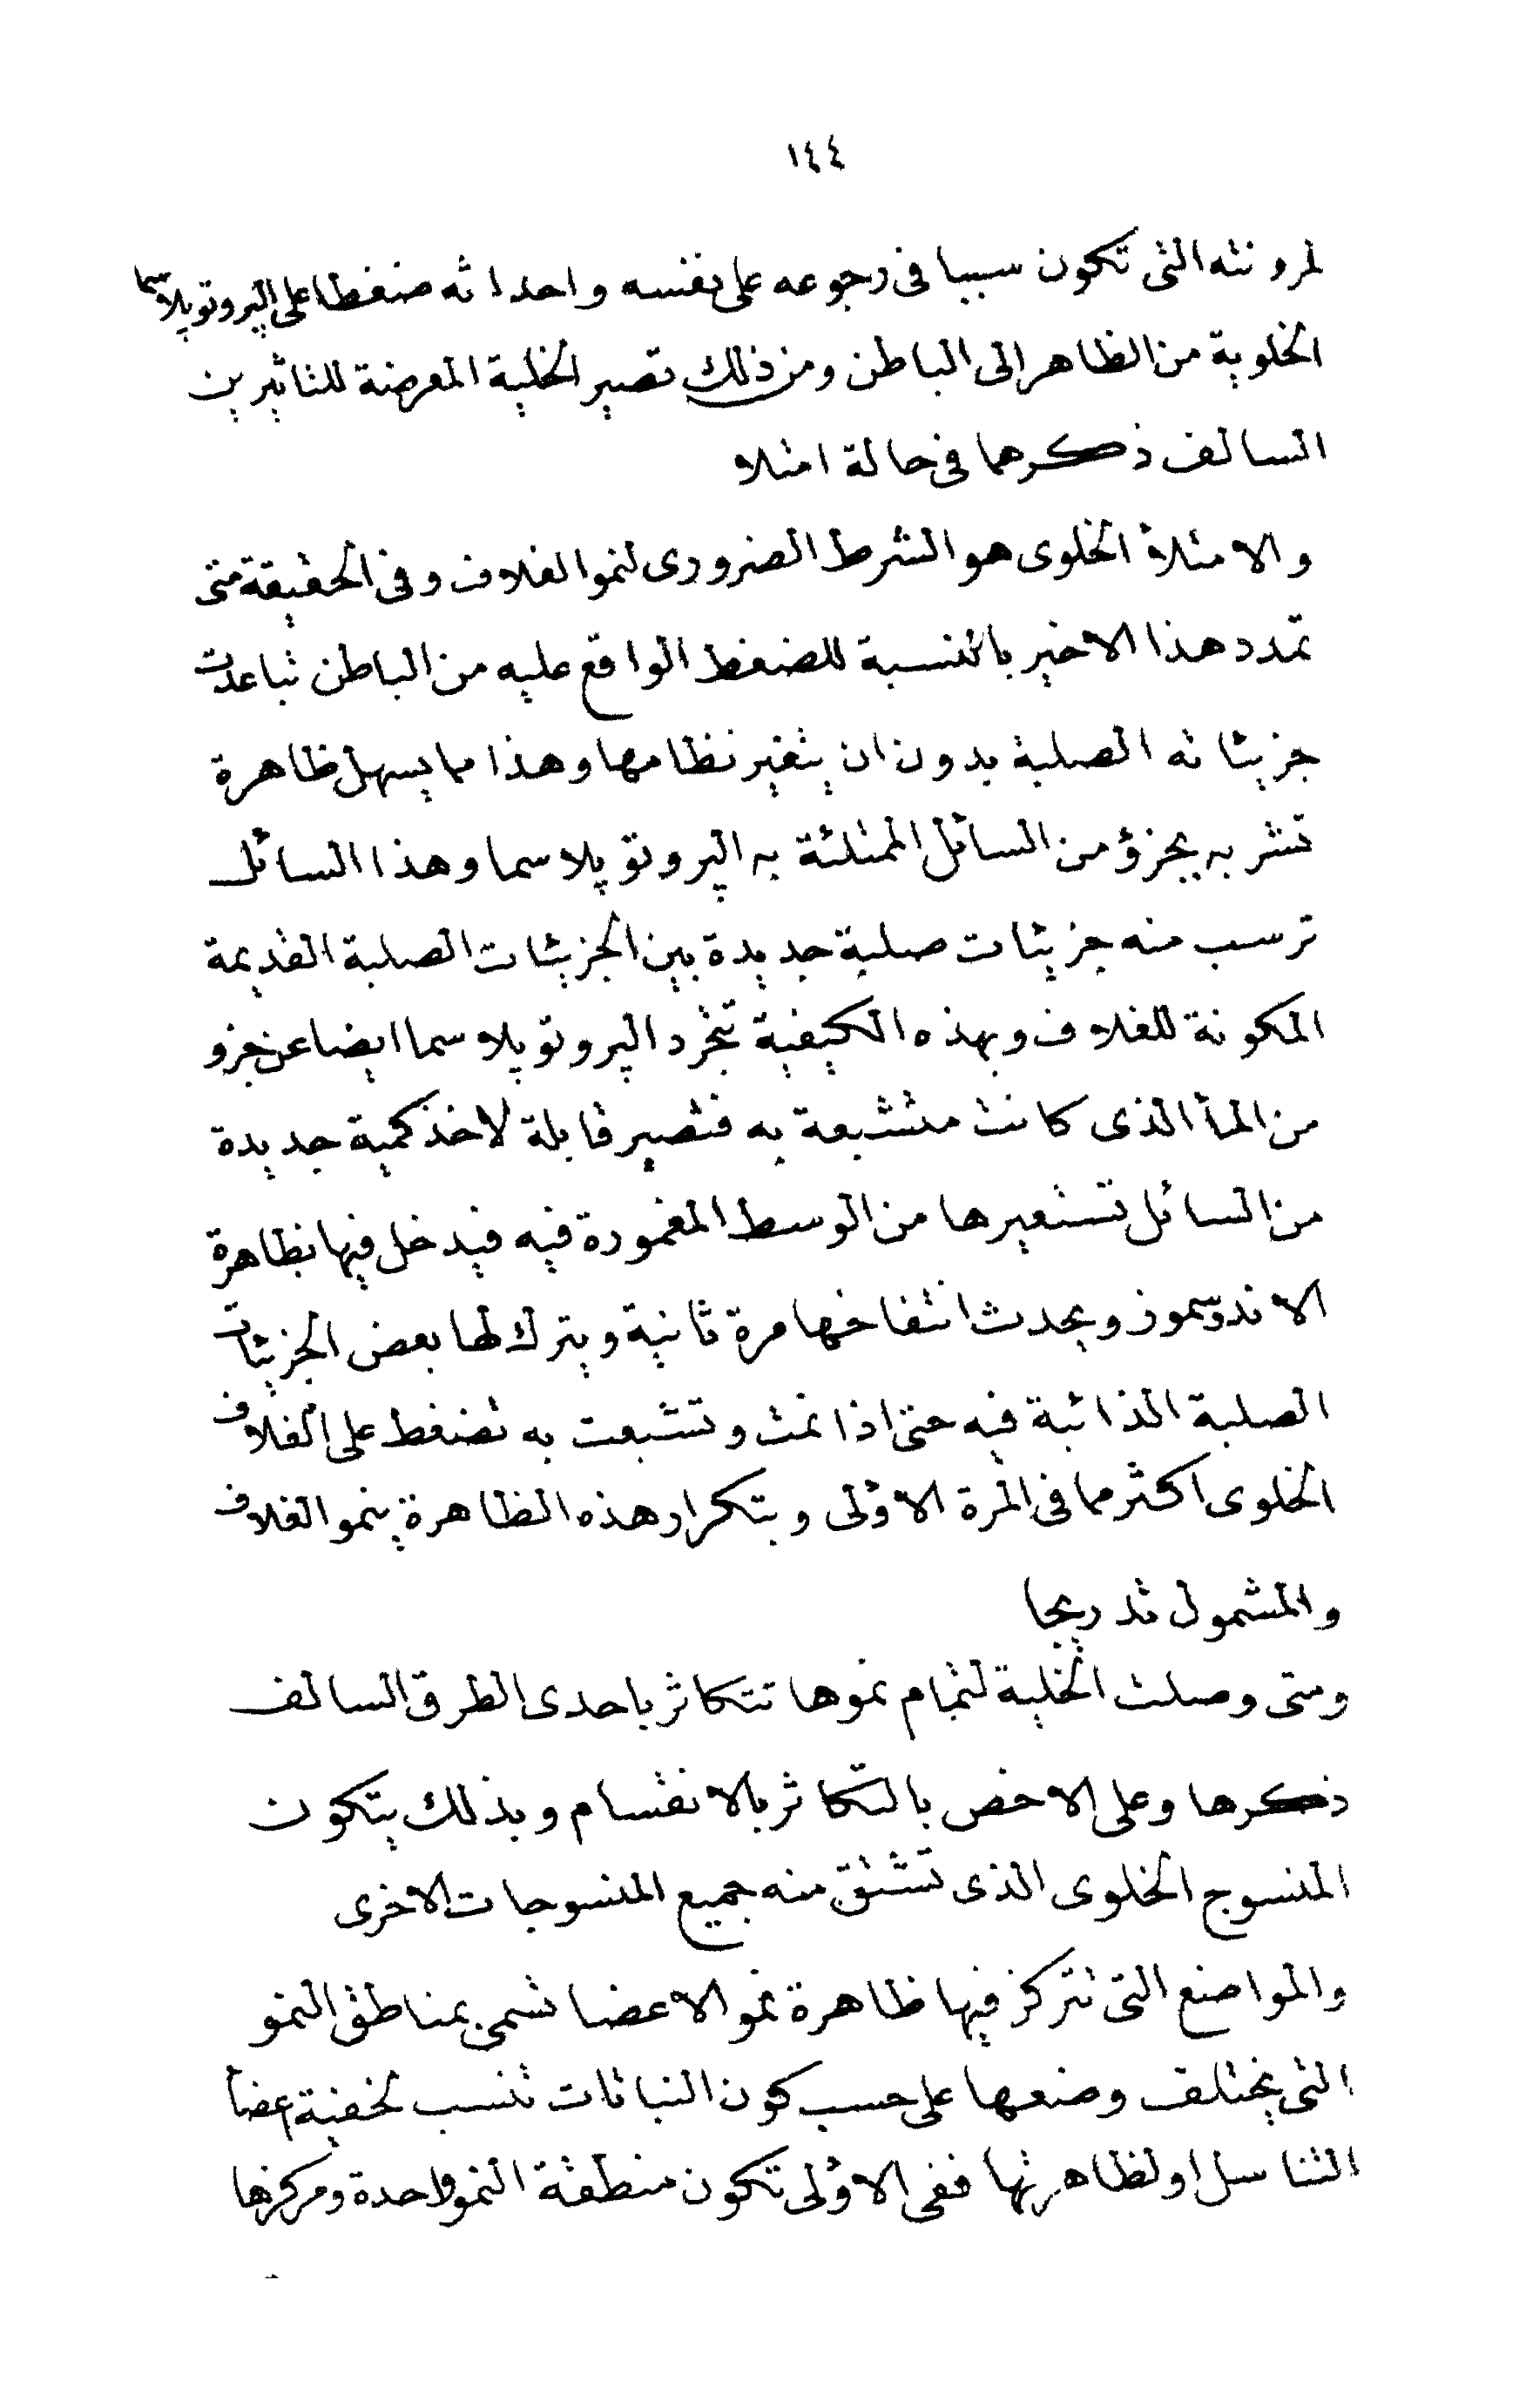 ١٤٤
لمرونته التى تكون سببا فى رجوعه على نفسه واحداثه ضغطا على البروتوپلاسما
الخلوية من الظاهر الى الباطن ومن ذلك تصير الخلية المعرضة للتاثيرين
السالف ذكرهما فى حالة امتلا
والامتلأ الخلوى هو الشرط الضرورى لنمو الغلاف وفى الحقيقة متى
تمدد هذا الاخير بالنسبة للضغط الواقع عليه من الباطن تباعدت
جزيئاته الصلبة بدون ان يتغير نظامها وهذا مما يسهل ظاهرة
تشربه بجزؤ من السائل الممتلئة به الپروتوپلاسما وهذا السائل
ترسب منه جزيئات صلبة جديدة بين الجزيئات الصلبة القديمة
المكونة للغلاف وبهذه الكيفية تنجرد الپروتوپلاسما ايضا عن جزو
من المأ الذى كانت متشبعة به فتصير قابلة لاخذ كمية جديدة
من السائل تستعيرها من الوسط المغمورة فيه فيدخل فيها بظاهرة
الاندوسموز ويحدث انتفاخها مرة ثانية ويترك لها بعض الجزيئات
الصلبة الذائبة فيه حتى اذا نمت وتشبعت به تضغط على الغلاف
الخلوى اكثر مما فى المرة الاولى وبتكرار هذه الظاهرة ينمو الغلاف
والمشمول تدريجا
ومتى وصلت الخلية لتمام نموها تتكاثر باحدى الطرق السالف
ذكرها وعلى الاخص بالتكاثر بالانقسام وبذلك يتكون
المنسوج الخلوى الذى تشتق منه جميع المنسوجات الاخرى
والمواضع التى تتركز فيها ظاهرة نمو الاعضا تسمى بمناطق النمو
التى يختلف وضعها على حسب كون النباتات تنسب لخفية اعضأ
التناسل او لظاهرتها ففى الاولى تكون منطقة النمو واحدة ومركزها